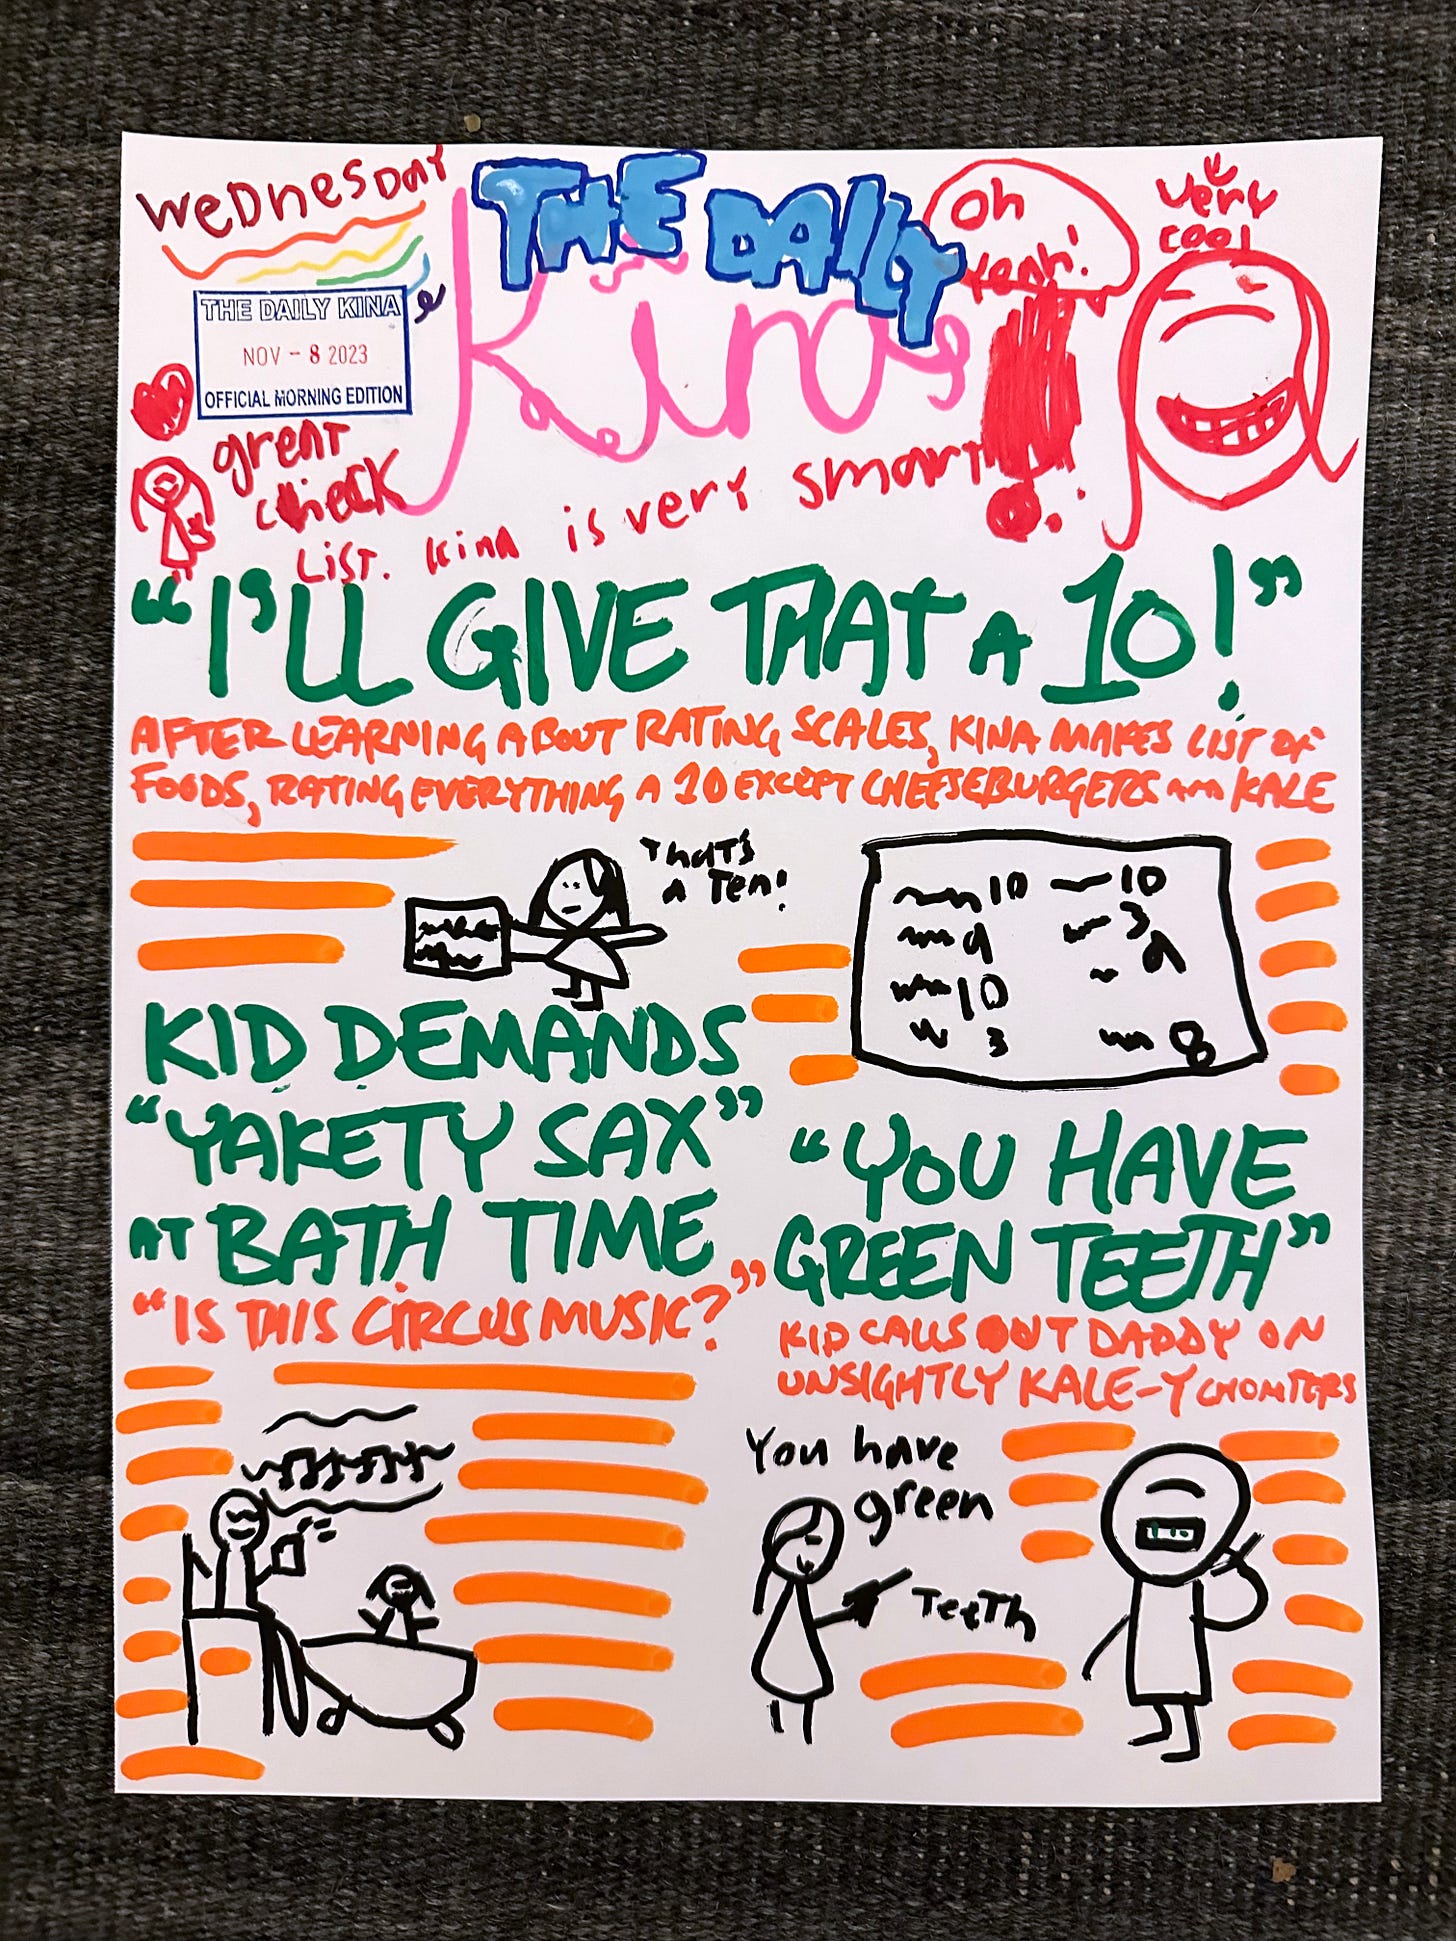 WeDnesDAY
THE DAILY
Kina
THE DAILY KINA
NOV - 8 2023
OFFICIAL MORNING EDITION
Oh
Yeah!
Very
cool
great
check
LiST. Kina is very smart
"I'LL GIVE THAT A 10!"
AFTER LEARNING ABOUT RATING SCALES, KINA MAKES LIST OF
FOODS, RATING EVERYTHING A 10 EXCEPT CHEESEBURGERS AND KALE
THAT'S
A Ten!
10 10
9 3
10 9
3 8
KID DEMANDS
"YAKETY SAX"
AT BATH TIME
"IS THIS CIRCUS MUSIC?"
"YOU HAVE
GREEN TEETH"
KID CALLS OUT DADDY ON
UNSIGHTLY KALE-Y CHOMPERS
You have
green
TeeTh